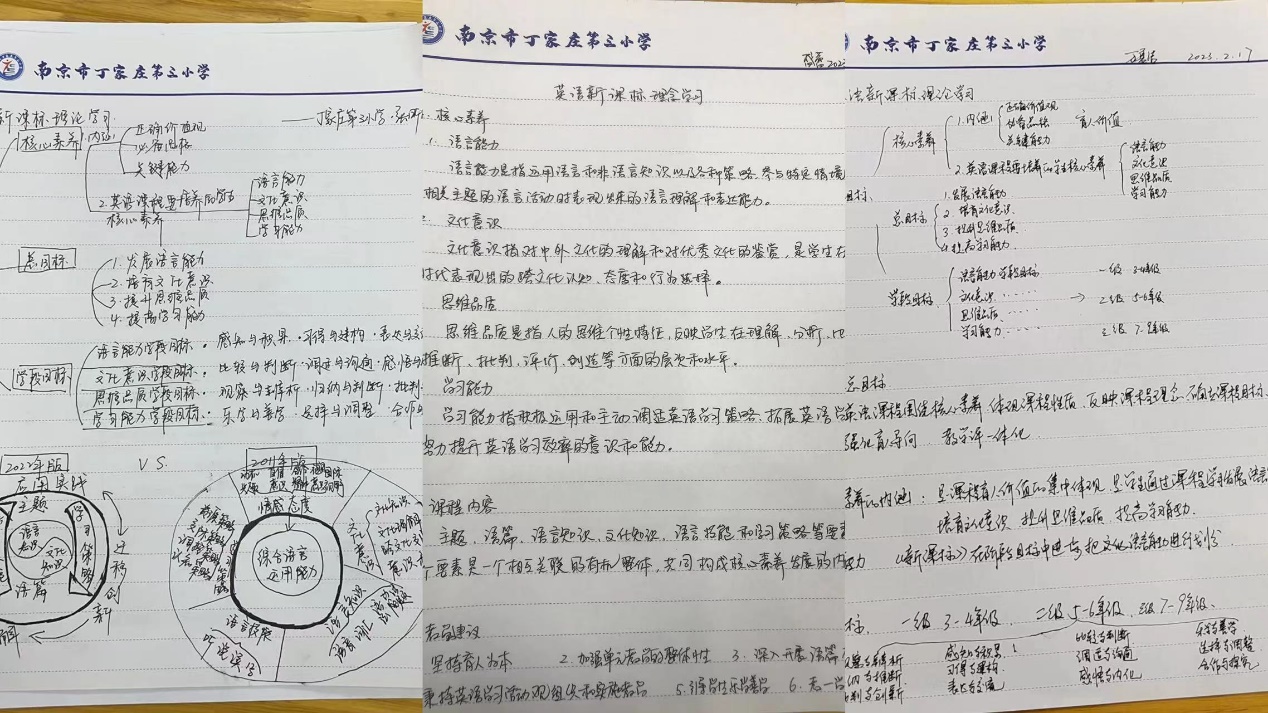 南京市丁家庄第三小学
新课标理论学习
核心素养
1.内涵
正确价值观
必备品格
关键能力
2.英语课程要培养的学生
核心素养
语言能力
文化意识
思维品质
学习能力
总目标
1.发展语言能力
2.培育文化意识
3.提升思维品质
4.提高学习能力
学段目标
语言能力学段目标:感知与积累·习得与建构·表达与交
文化意识学段目标:比较与判断·调适与沟通·感悟与
思维品质学段目标:观察与辨析·归纳与判断·批判
学习能力学段目标:乐学与善学·选择与调整·合作
2022年版
VS.
2011年版
应用实践
主题
语言
知识
文化
知识
语篇
学习策略
迁移创新
情感态度
综合语言
运用能力
文化意识
语言知识
语言技能
听说读写
南京市丁家庄第三小学
英语新课标理念学习
核心素养
1.语言能力
语言能力是指运用语言和非语言知识以及各种策略,参与特定情境
相关主题的语言活动时表现出来的语言理解和表达能力。
文化意识
文化意识指对中外文化的理解和对优秀文化的鉴赏,是学生在
时代表现出的跨文化认知、态度和行为选择。
思维品质
思维品质是指人的思维个性特征,反映学生在理解、分析、比
推断、批判、评价、创造等方面的层次和水平。
学习能力
学习能力指积极运用和主动调适英语学习策略、拓展英语学
努力提升英语学习效率的意识和能力。
课程内容
主题、语篇、语言知识、文化知识、语言技能和学习策略等要素
要素是一个相互关联的有机整体,共同构成核心素养发展的内
教学建议
坚持育人为本 2.加强单元教学的整体性 3.深入开展语篇
秉持英语学习活动观组织和实施教学 5.引导学生乐学善学 6.
南京市丁家庄第三小学
2023.2.17
语新课标理论学习
核心素养
1.内涵
正确价值观
必备品格
关键能力
育人价值
2.英语课程要培养的学生核心素养
语言能力
文化意识
思维品质
学习能力
目标
总目标
1.发展语言能力
2.培育文化意识
3.提升思维品质
4.提高学习能力
学段目标
语言能力学段目标
文化意识……
思维品质……
学习能力……
一级 3-4年级
→ 2级 5-6年级
三级 7-9年级
总目标
英语课程围绕核心素养,体现课程性质,反映课程理念,确立课程目标
强化育导向 教学评一体化
素养的内涵:是课程育人价值的集中体现,是学生通过课程学习发展语言
培育文化意识 提升思维品质 提高学习能力
《新课标》在阶段目标中进
一级 3-4年级, 二级 5-6年级, 三级 7-9年级、
感知与积累
习得与建构
表达与交流
比较与判断
调适与沟通
感悟与内化
乐学与善学
选择与调整
合作与探究